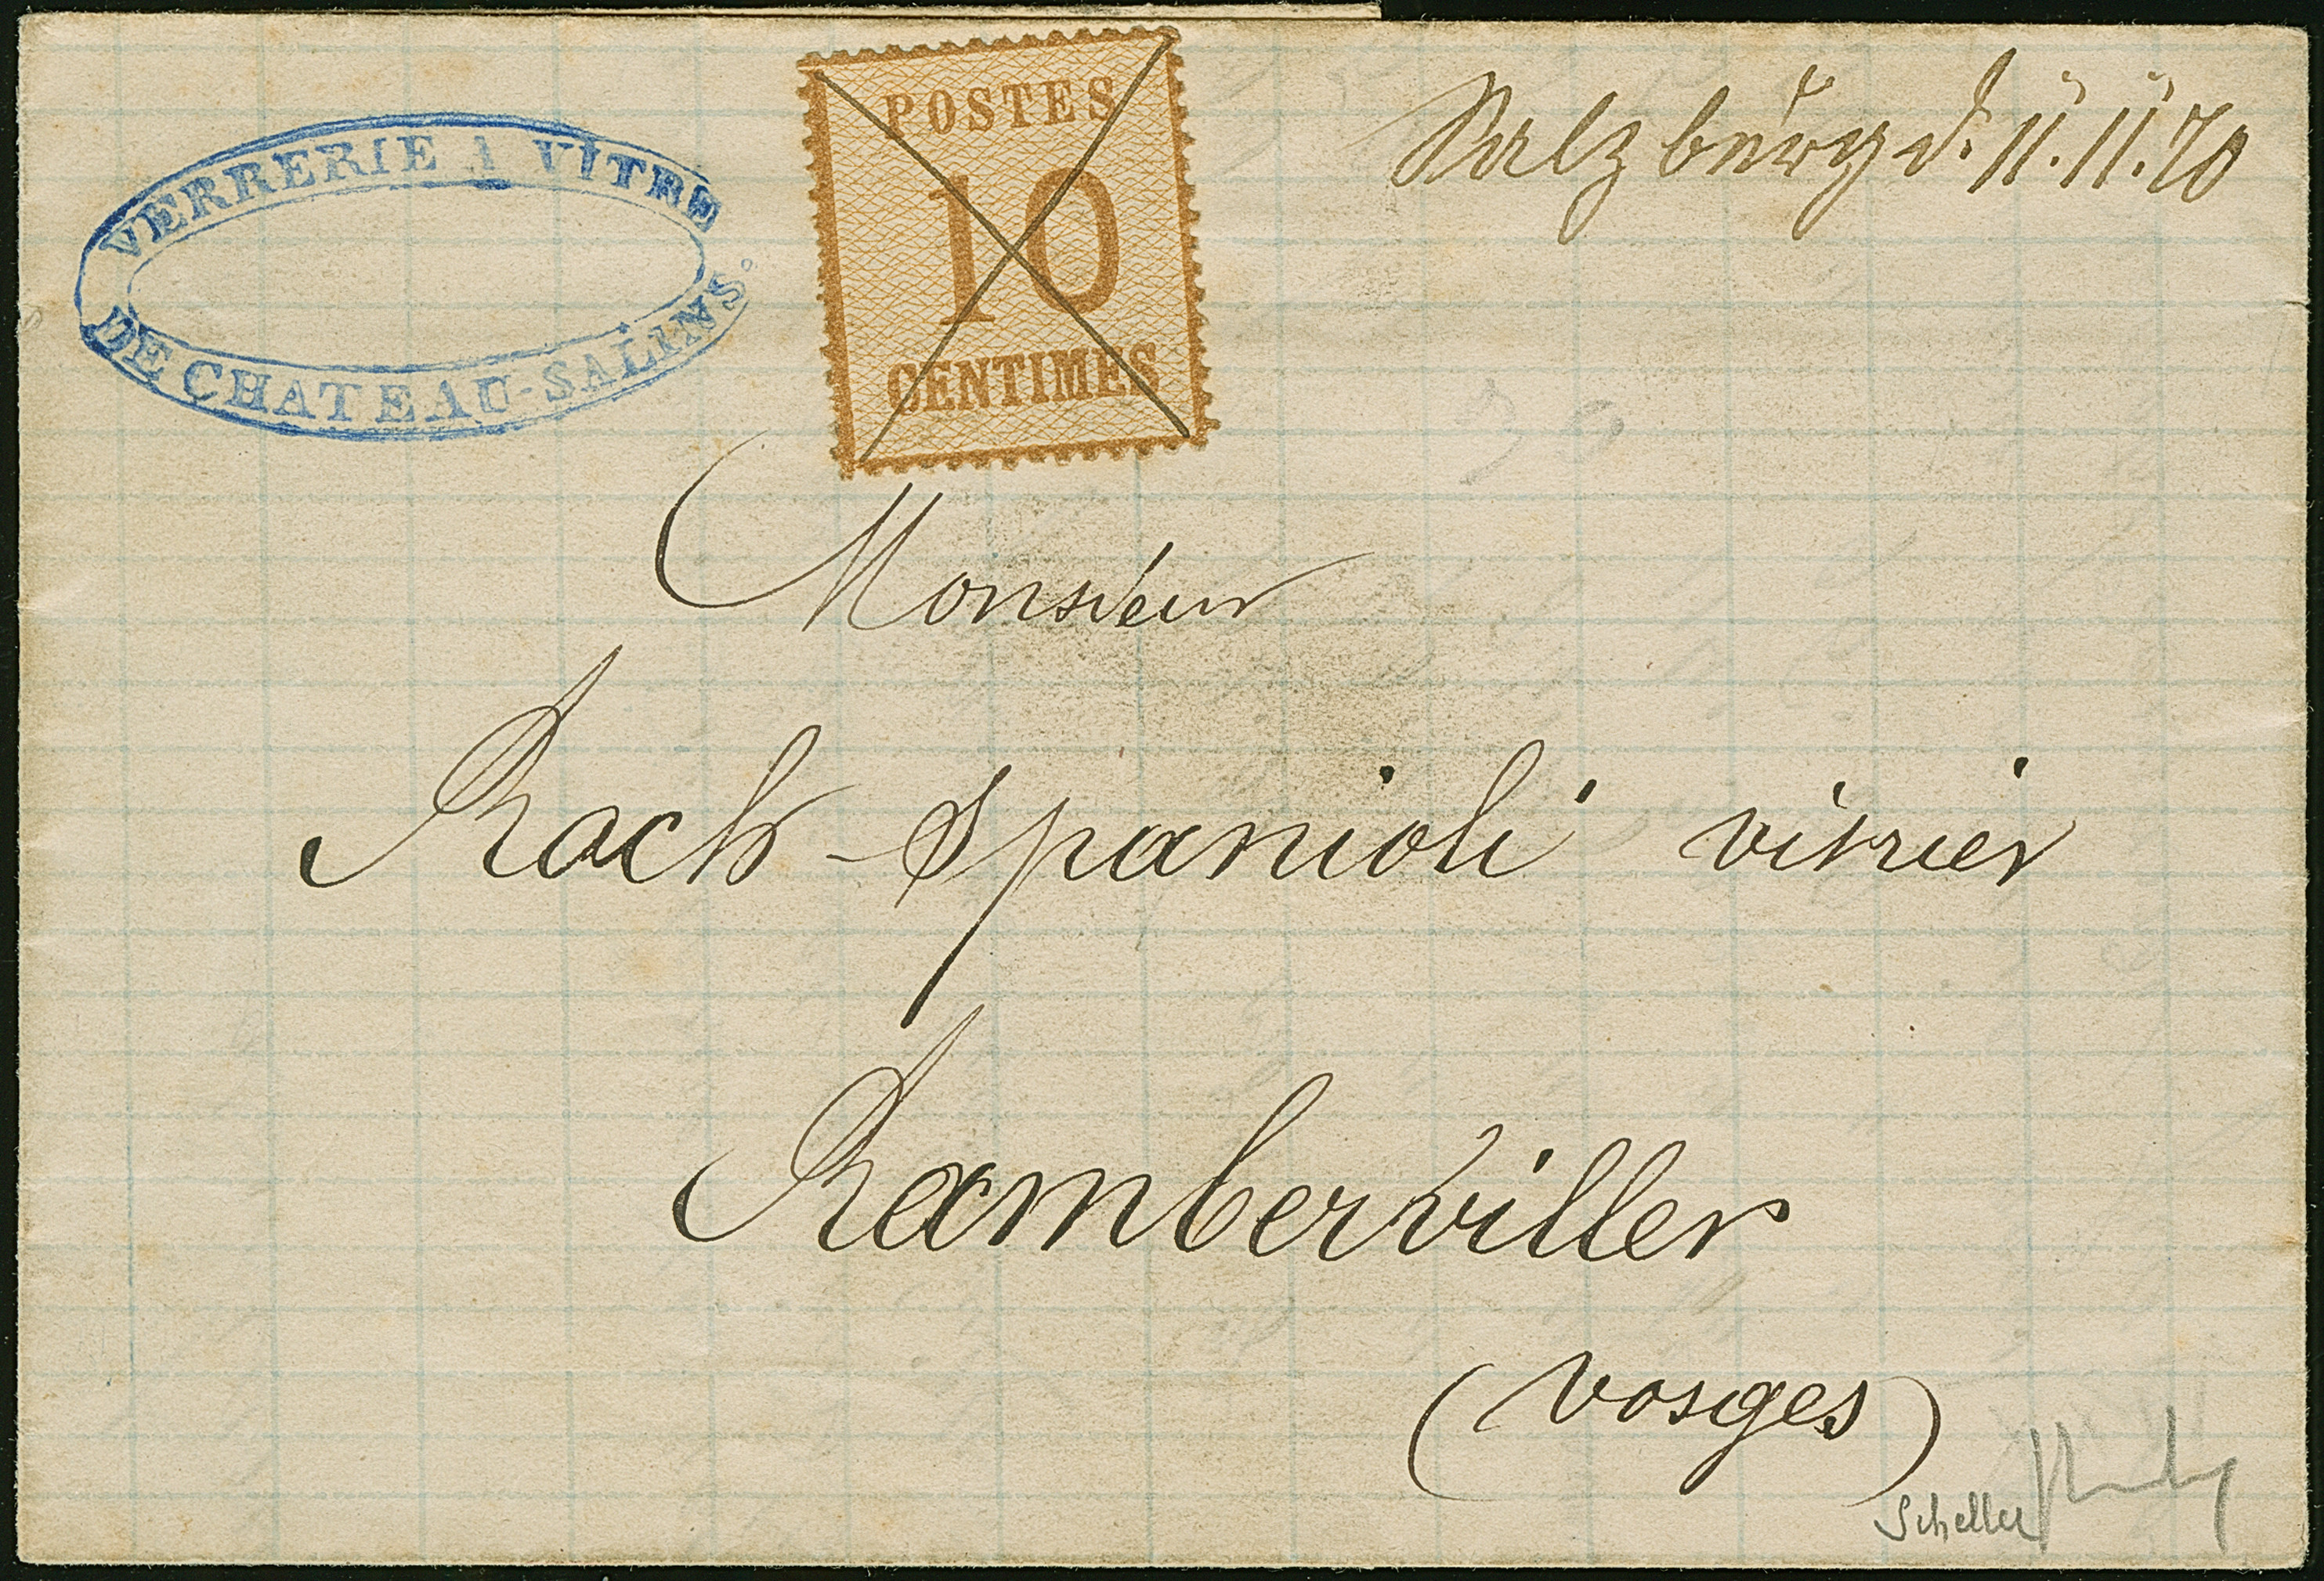 VERRERIE A VITRE
DE CHATEAU-SALINS.
POSTES
10
CENTIMES
Salzburg d. 11.11.70
Monsieur
Roch-Spanioli vitrier
Ramberviller
(Vosges)
Scheller